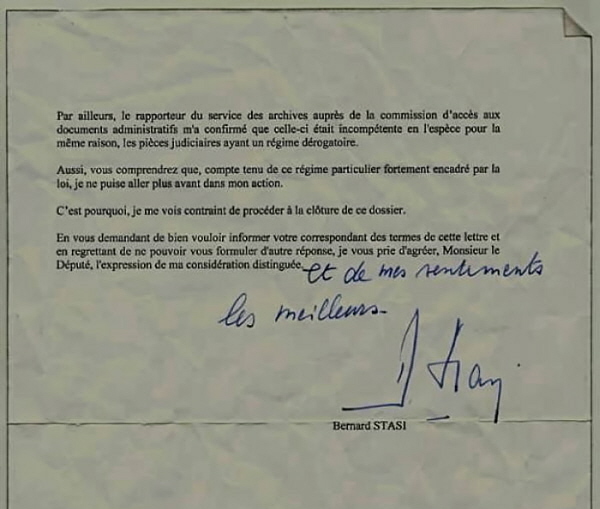 Par ailleurs, le rapporteur du service des archives auprès de la commission d'accès aux
documents administratifs m'a confirmé que celle-ci était incompétente en l'espèce pour la
même raison, les pièces judiciaires ayant un régime dérogatoire.
Aussi, vous comprendrez que, compte tenu de ce régime particulier fortement encadré par la
loi, je ne puise aller plus avant dans mon action.
C'est pourquoi, je me vois contraint de procéder à la clôture de ce dossier.
En vous demandant de bien vouloir informer votre correspondant des termes de cette lettre et
en regrettant de ne pouvoir vous formuler d'autre réponse, je vous prie d'agréer, Monsieur le
Député, l'expression de ma considération distinguée et de mes sentiments
les meilleurs.
B Stasi
Bernard STASI